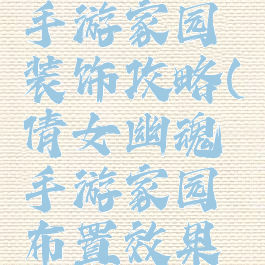 手游家园
装饰攻略(
倩女幽魂
手游家园
布置效果